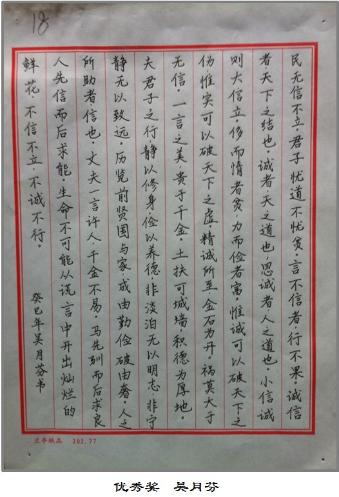 18
民无信不立，君子忧道不忧贫，言不信者，行不果，诚信
者天下之结也，诚者天之道也，思诚者人之道也，小信诚
则大信立，侈而惰者贫，力而俭者富，惟诚可以破天下之
伪惟实可以破天下之虚，精诚所至金石为开，祸莫大于
无信，一言之美，贵于千金，土扶可城墙，积德为厚地，
夫君子之行静以修身俭以养德，非淡泊无以明志，非宁
静无以致远，历览前贤国与家，成由勤俭破由奢，人之
所助者信也，丈夫一言许人，千金不易，马先驯而后求良
人先信而后求能，生命不可能从谎言中开出灿烂的
鲜花，不信不立，不诚不行。
癸巳年吴月芬书
兰亭纸品 202.77
优秀奖 吴月芬